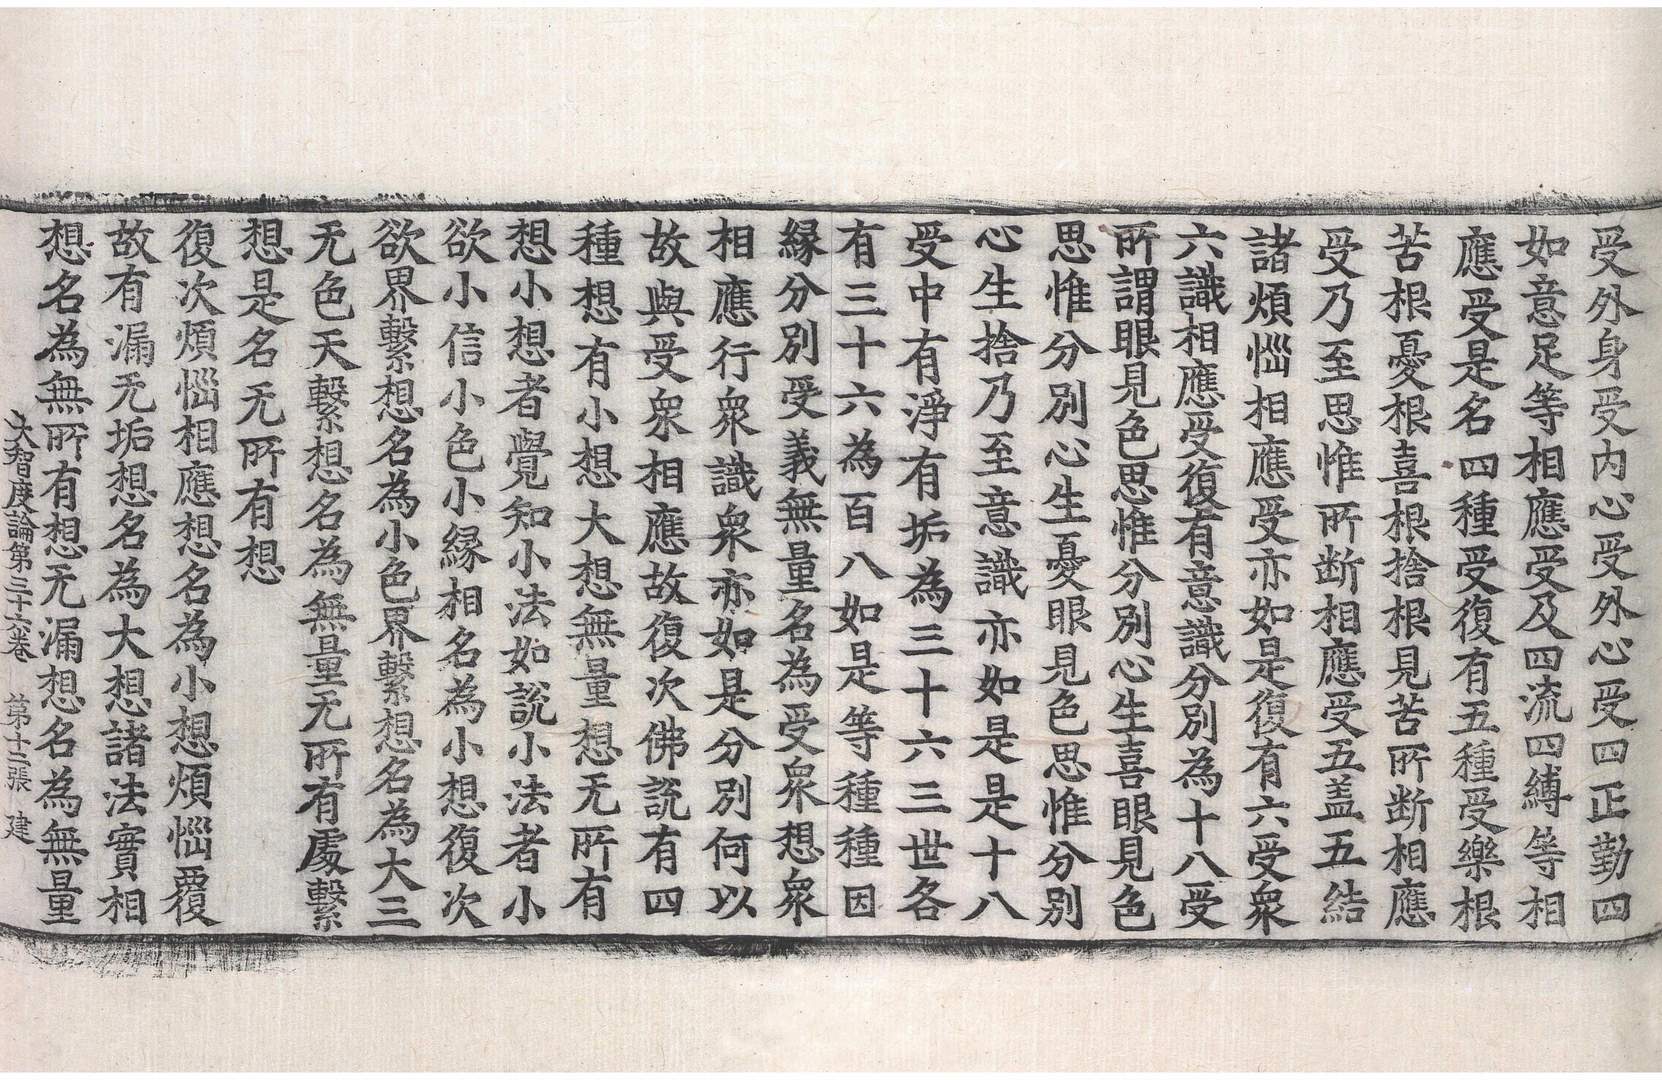 受外身受内心受外心受四正勤四
如意足等相應受及四流四縛等相
應受是名四種受復有五種受樂根
苦根憂根喜根捨根見苦所断相應
受乃至思惟所断相應受五盖五結
諸煩惱相應受亦如是復有六受衆
六識相應受復有意識分別為十八受
所謂眼見色思惟分別心生喜眼見色
思惟分別心生憂眼見色思惟分別
心生捨乃至意識亦如是是十八
受中有淨有垢為三十六三世各
有三十六為百八如是等種種因
縁分別受義無量名為受衆想衆
相應行衆識衆亦如是分別何以
故與受衆相應故復次佛說有四
種想有小想大想無量想无所有
想小想者覺知小法如說小法者小
欲小信小色小縁相名為小想復次
欲界繫想名為小色界繫想名為大三
无色天繫想名為無量无所有處繫
想是名无所有想
復次煩惱相應想名為小想煩惱覆
故有漏无垢想名為大想諸法實相
想名為無所有想无漏想名為無量
大智度論第三十六卷 第十三張 建